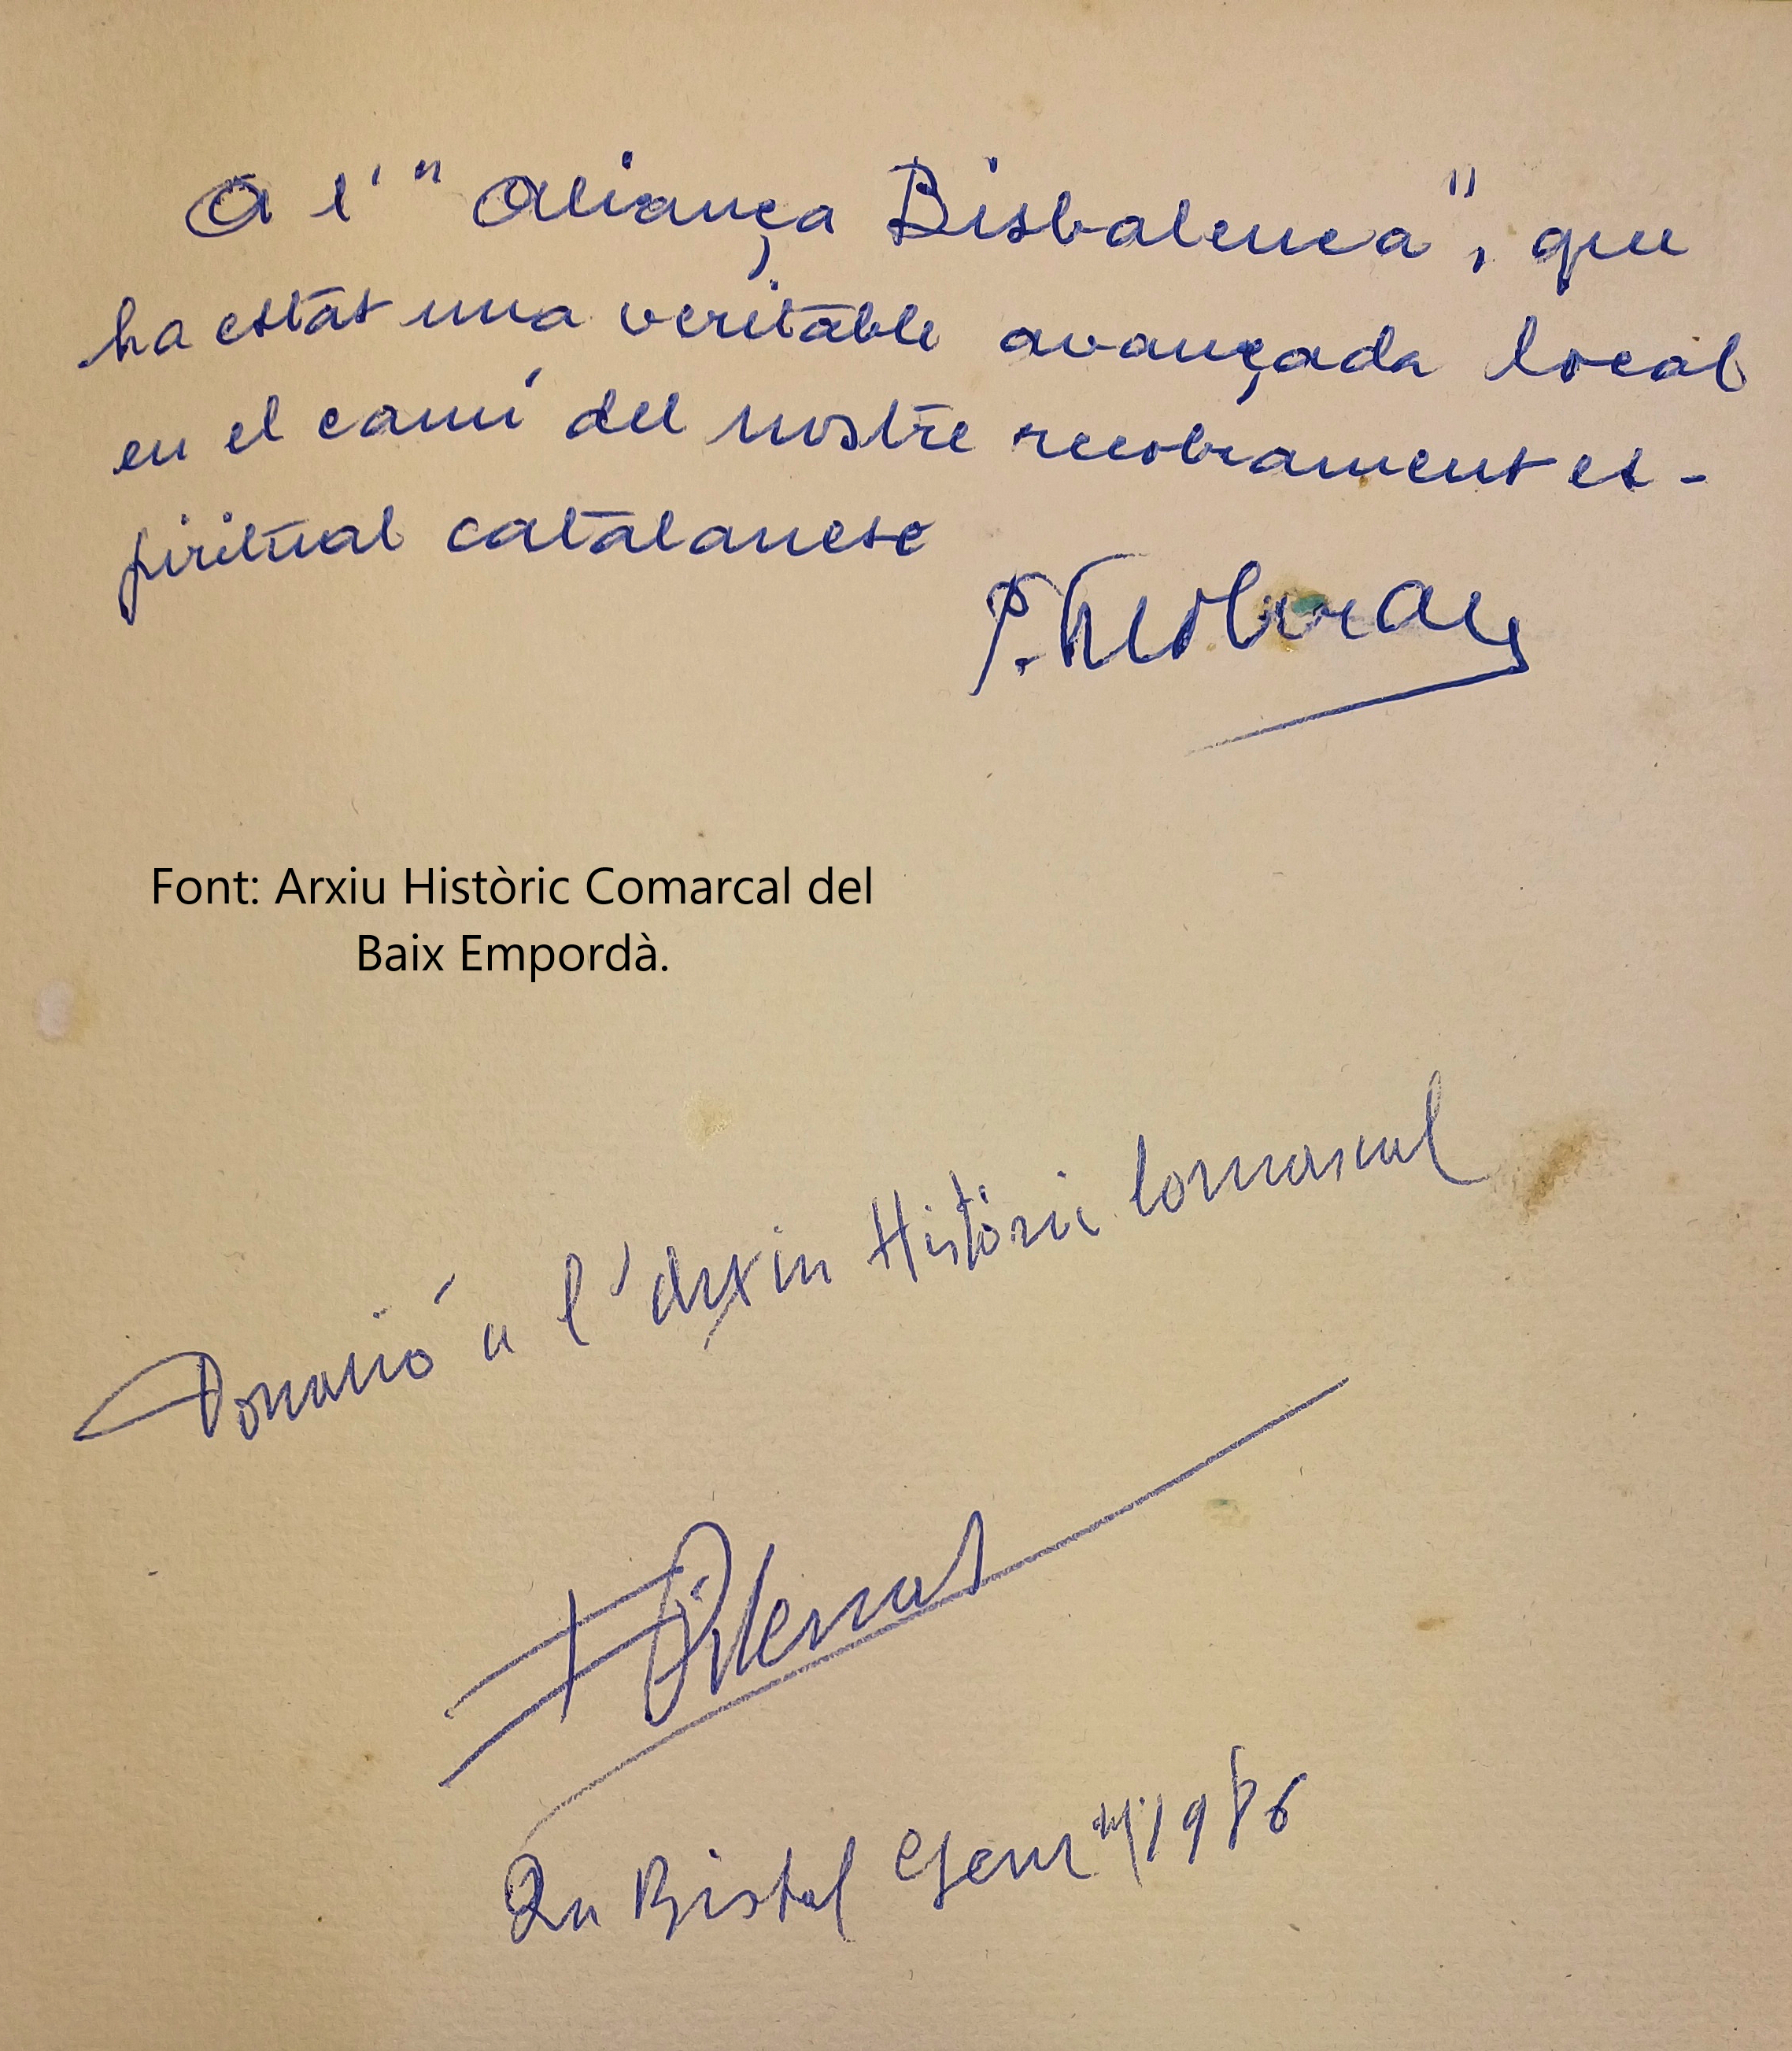 A l' "Aliança Bisbalenca", que
ha estat una veritable avançada local
en el camí del nostre recobrament es-
piritual catalanesc
P.
Font: Arxiu Històric Comarcal del
Baix Empordà.
Donació a l'Arxiu Històric Comarcal
La Bisbal Gener 1986